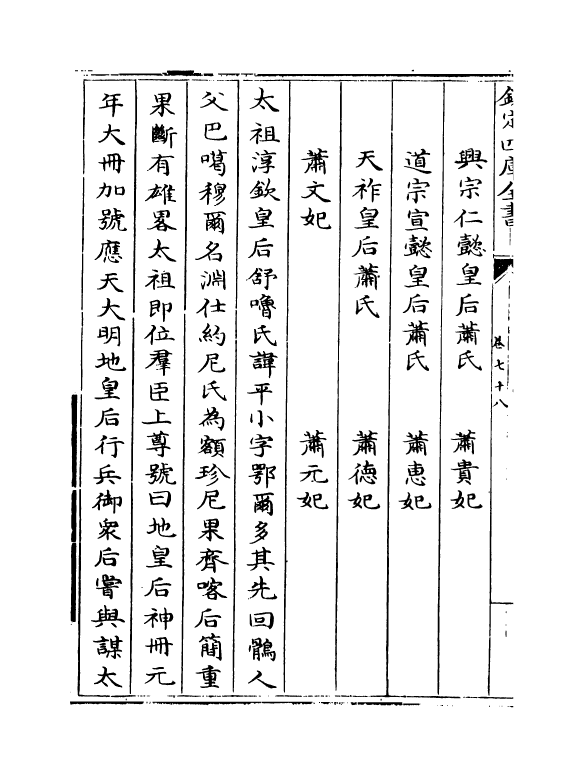 欽定四庫全書
卷七十八
興宗仁懿皇后蕭氏　蕭貴妃
道宗宣懿皇后蕭氏　蕭惠妃
天祚皇后蕭氏　蕭德妃
蕭文妃　蕭元妃
太祖淳欽皇后舒嚕氏諱平小字鄂爾多其先回鶻人
父巴噶穆爾名淵仕約尼氏為額珍尼果齊喀后簡重
果斷有雄畧太祖即位羣臣上尊號曰地皇后神冊元
年大冊加號應天大明地皇后行兵御衆后嘗與謀太